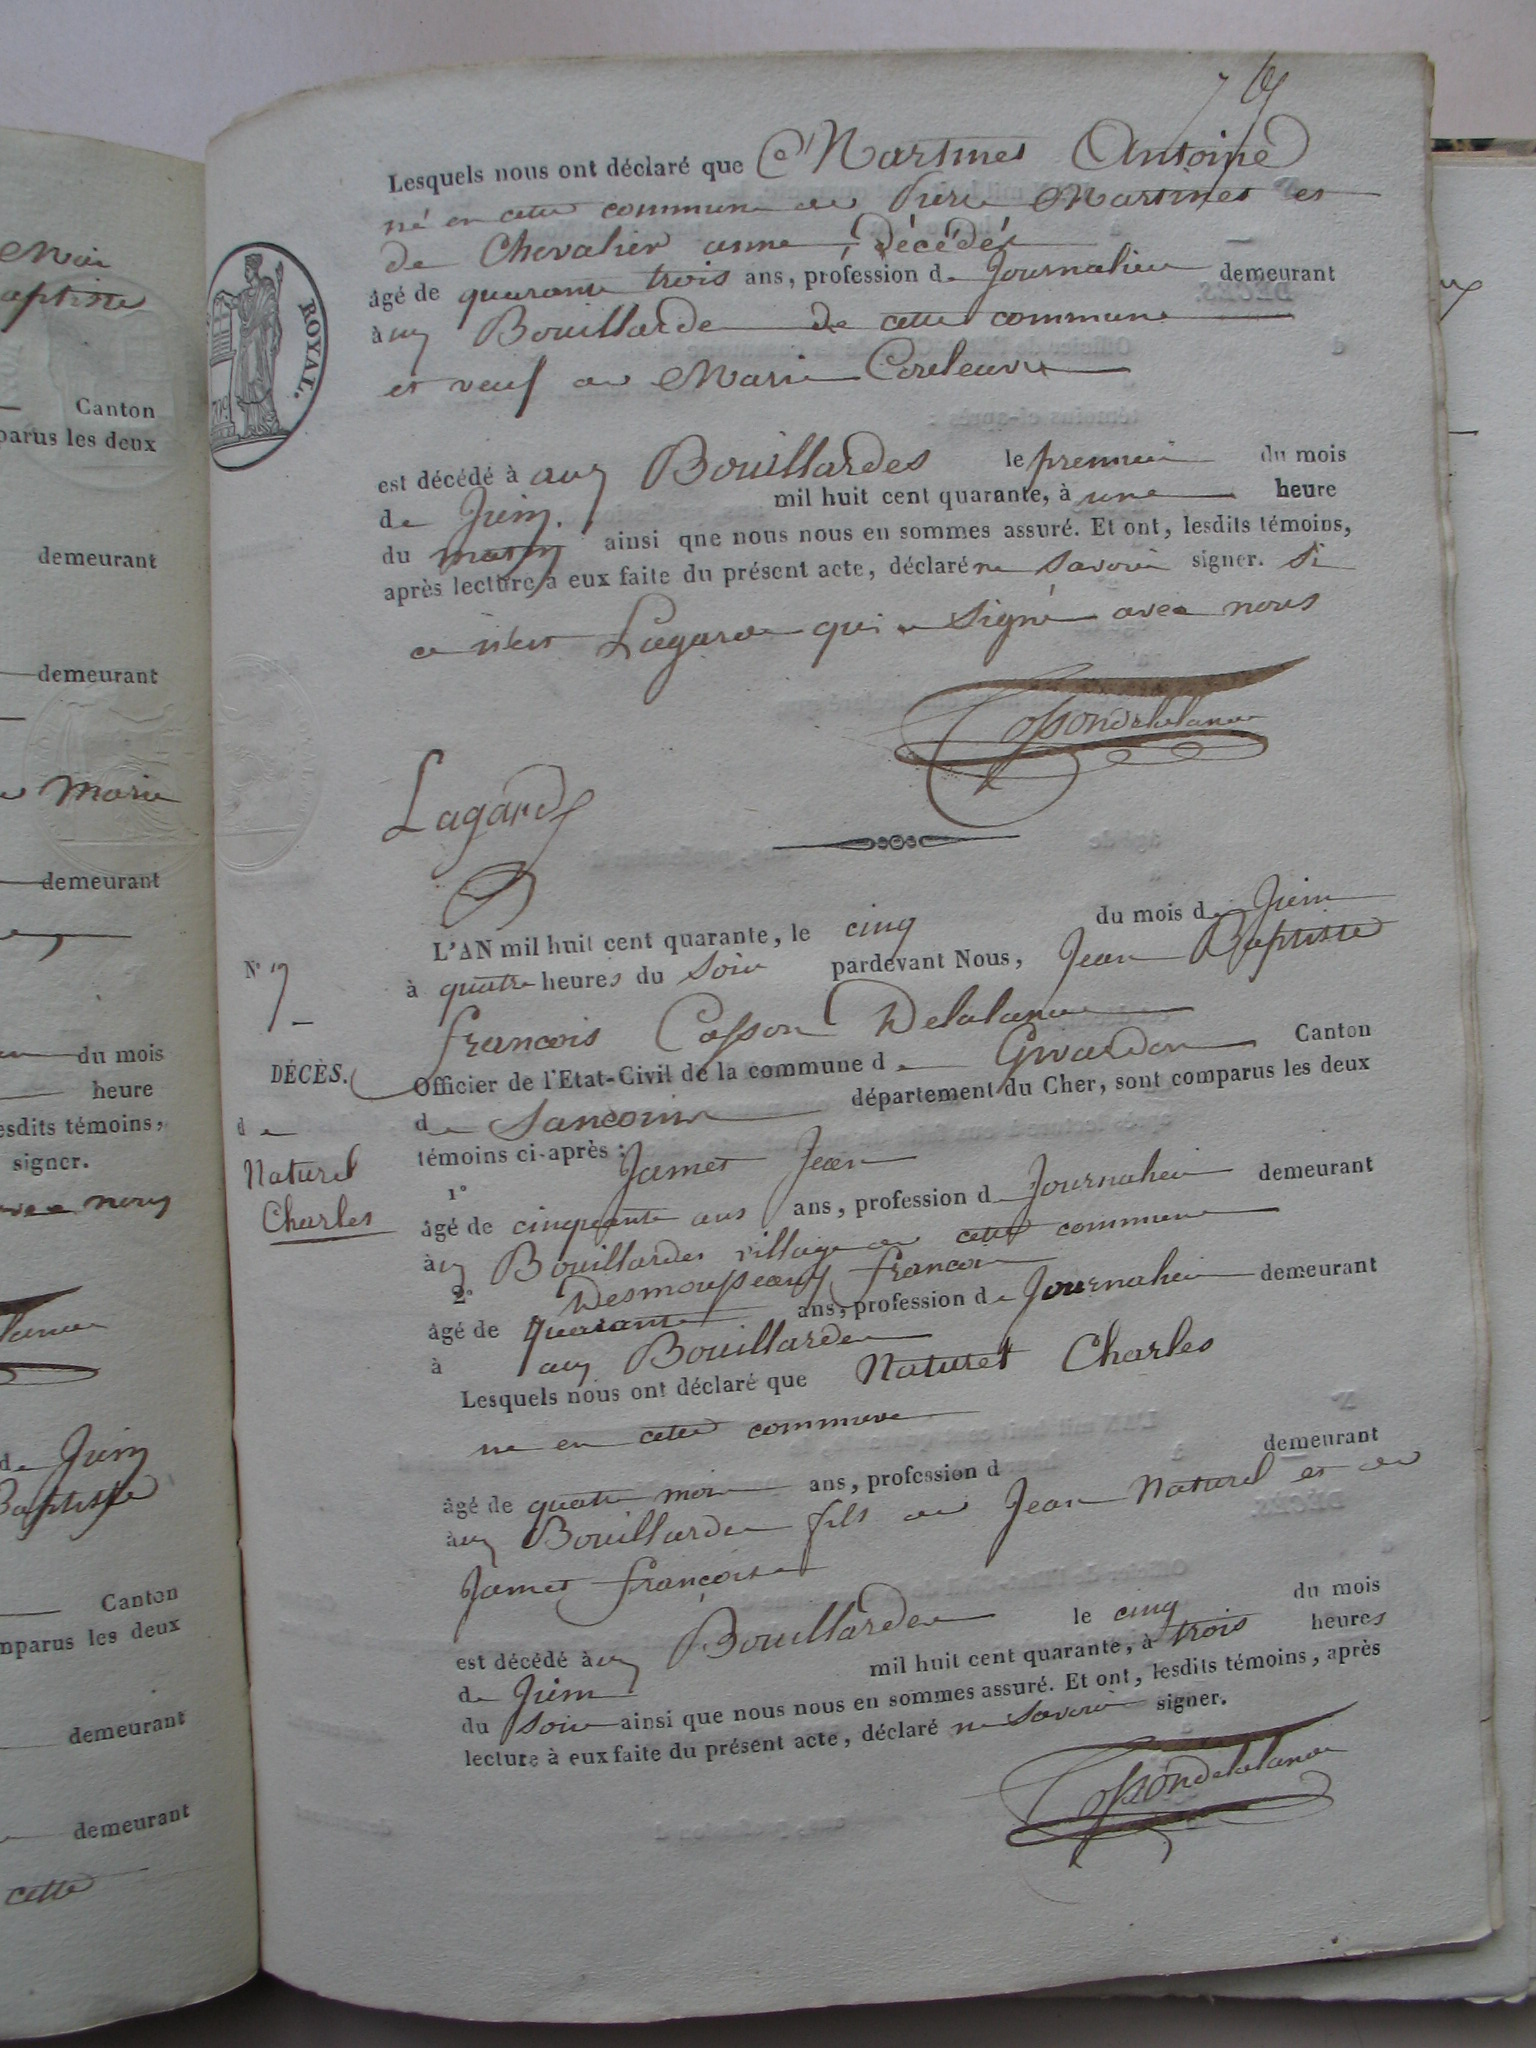 Lesquels nous ont déclaré que Martinet Antoine
né en cette commune de Pierre Martinet et
de Chevalier anne, Décédés
âgé de quarante trois ans, profession de Journalier demeurant
à aux Bouillarde de cette commune
et veuf de Marie
ROYAL.
est décédé à aux Bouillardes le premier du mois
de Juin mil huit cent quarante, à une heure
du matin ainsi que nous nous en sommes assuré. Et ont, lesdits témoins,
après lecture à eux faite du présent acte, déclaré ne savoir signer. Si
ce n'est Lagarde qui a signé avec nous
Cossondelalanne
Lagarde
L'AN mil huit cent quarante, le cinq du mois de Juin
à quatre heures du soir pardevant Nous, Jean Baptiste
françois Cosson Delalanne
Officier de l'Etat-Civil de la commune de Givardon Canton
de Sancoins département du Cher, sont comparus les deux
témoins ci-après :
1° Jamet Jean
âgé de cinquante ans ans, profession de Journalier demeurant
à aux Bouillardes village de cette commune
2° Desmousseaux françois
âgé de quarante ans, profession de Journalier demeurant
à aux Bouillarde
Lesquels nous ont déclaré que Naturel Charles
né en cette commune
âgé de quatre mois ans, profession d demeurant
à aux Bouillarde fils de Jean Naturel et de
Jamet françoise
est décédé à aux Bouillarde le cinq du mois
de Juin mil huit cent quarante, à trois heures
du soir ainsi que nous nous en sommes assuré. Et ont, lesdits témoins, après
lecture à eux faite du présent acte, déclaré ne savoir signer.
Cossondelalanne
N°
DÉCÈS.
de
Naturel
Charles
Baptiste
Canton
parus les deux
demeurant
demeurant
Marie
demeurant
du mois
heure
esdits témoins,
signer.
avec nous
de Juin
Baptiste
Canton
mparus les deux
demeurant
demeurant
cette